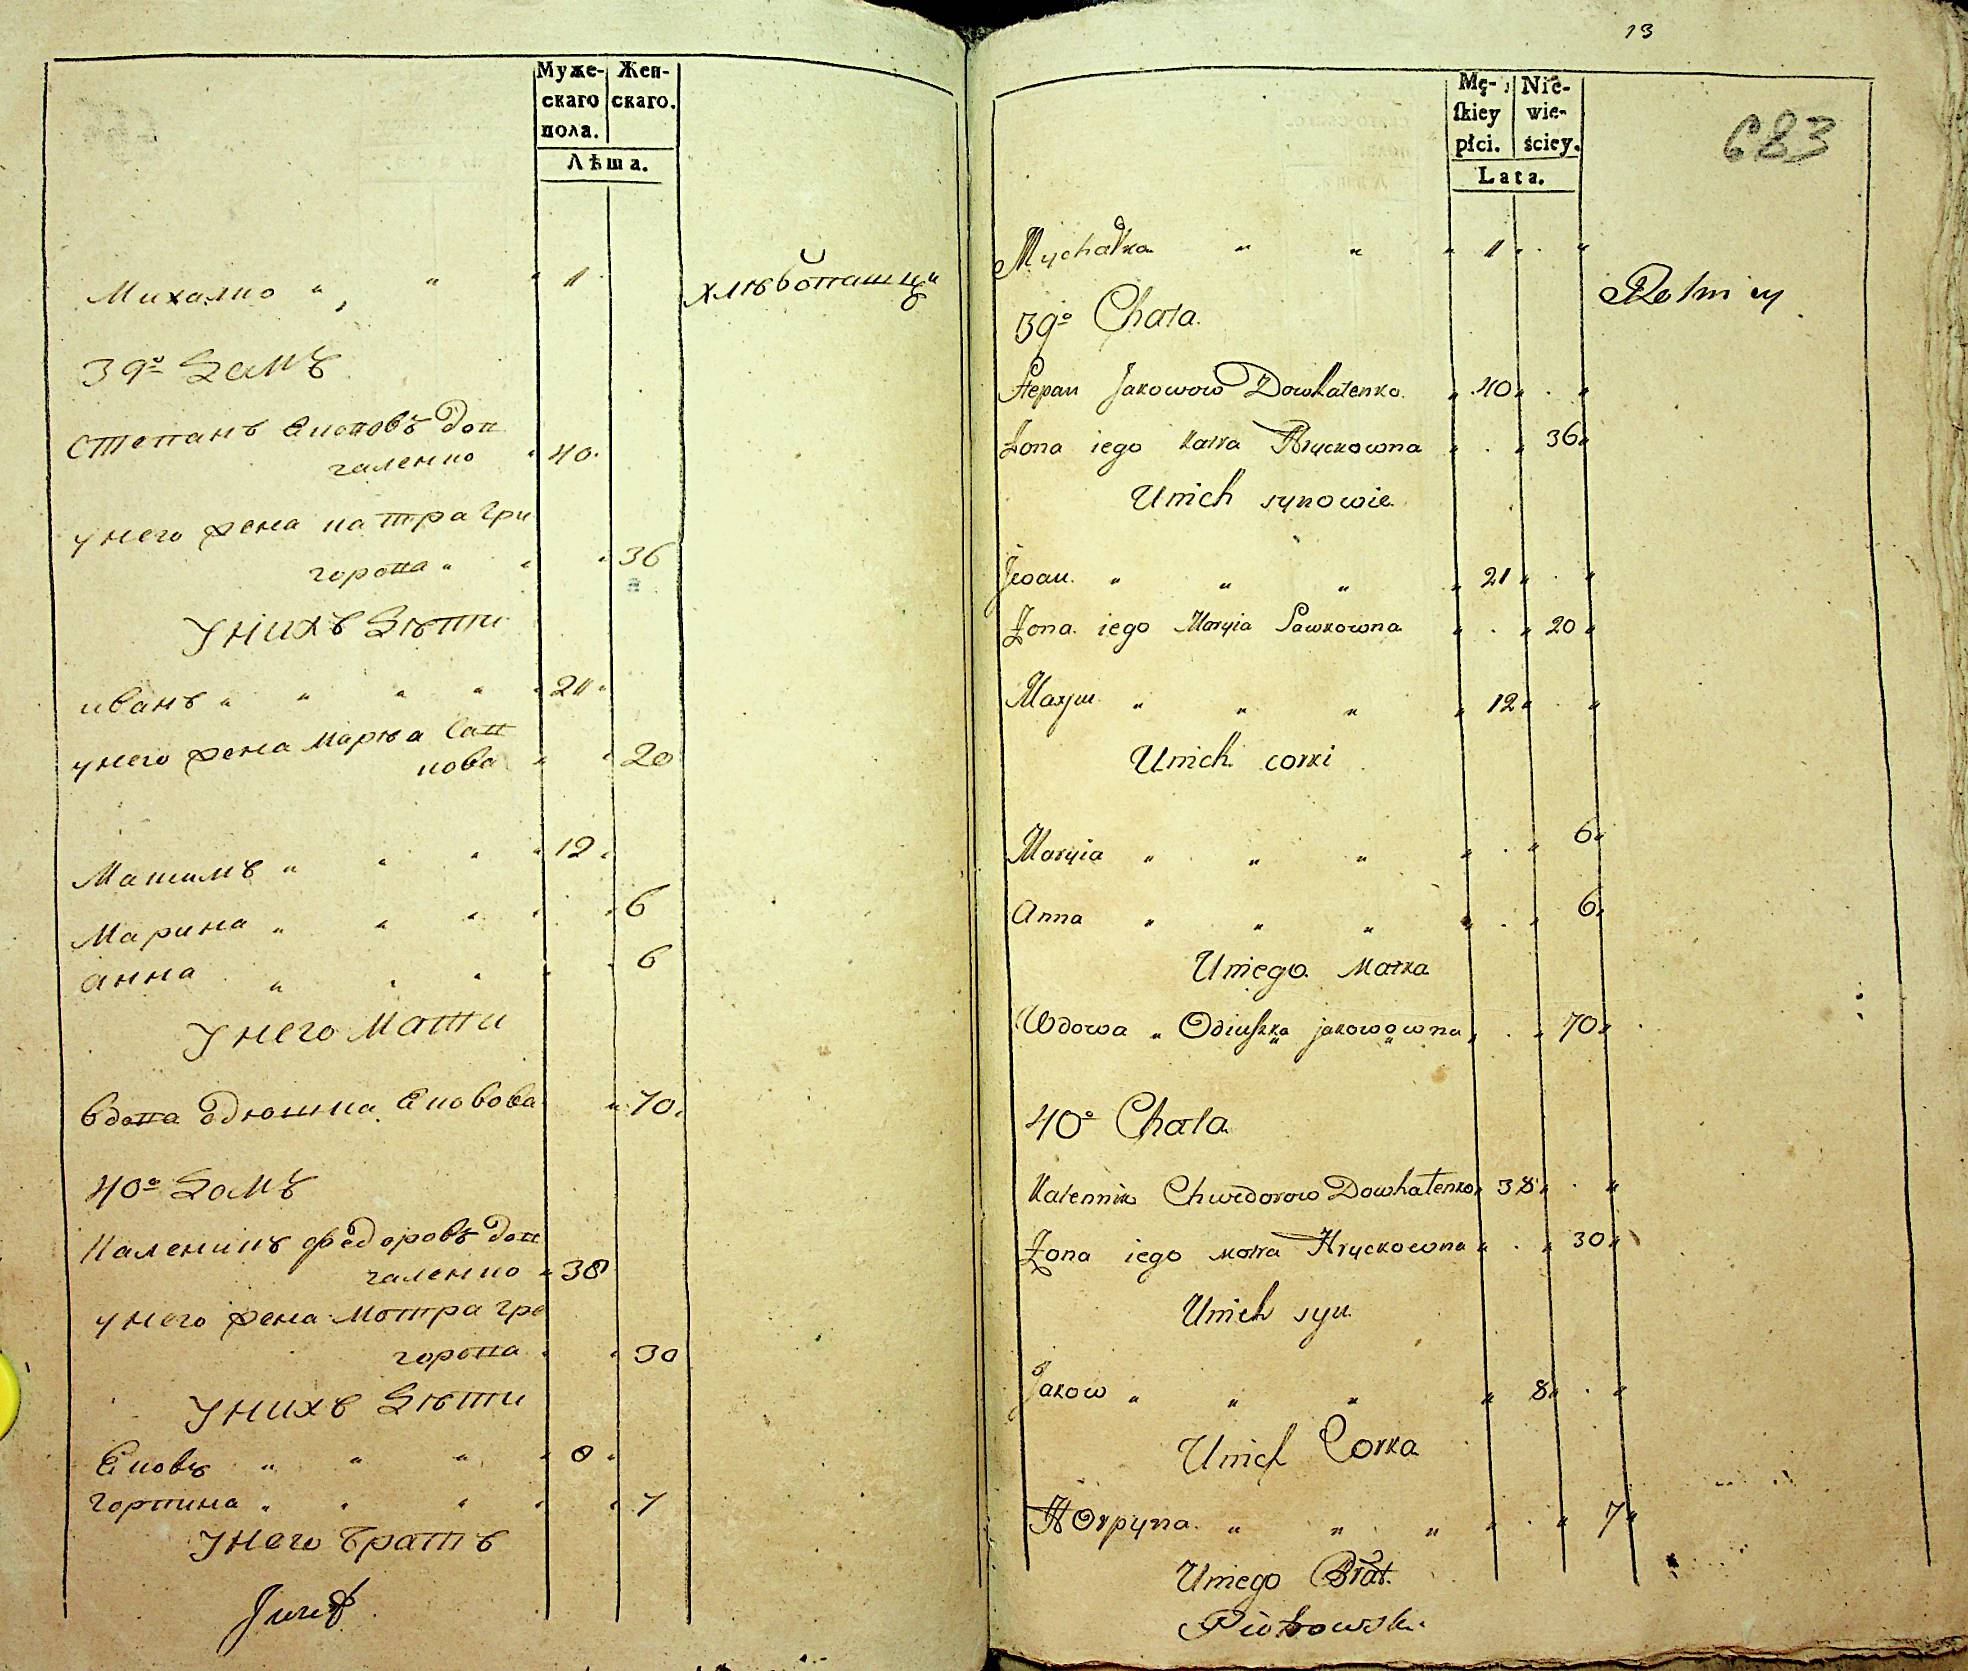 Муже-
скаго
пола.
Жен-
скаго.
Лѣта.
Михалко " " " 11
хлѣбопашцы
39º домъ
Степанъ Яковъ Дов
галенко " 40
у него жена катра Гри
горова " " " 36
У нихъ дѣти
иванъ " " " " " 21 "
у него жена Маръя Сав
кова " " 20
Максимъ " " " " 12 "
Марина " " " " " 6
анна " " " " " 6
У него Мати
вдова Одюшка Яковова " 70
40º домъ
Каленикъ Федоровъ Дов
галенко " 38
у него жена Мотра Гре
горова " " 30
У нихъ дѣти
Яковъ " " " " 8 "
Горпина " " " " " 7
У него Братъ
13
683
Mę-
skiey
płci.
Nie-
wie-
ściey.
Lata.
Mychałka " " " 11 " . "
Rolnicy
39º Chata
Stepan Jakowow Dowhalenko " 40 " . "
Żona iego Katra Hryckowna " . " 36 "
Unich synowie
Jwan " " " " 21 " . "
Żona iego Maryia Sawkowna " . " 20 "
Maxym " " " " 12 " . "
Unich corki
Maryia " " " " . " 6 "
Anna " " " " . " 6 "
Uniego Matka
Wdowa " Odiuszka jakowowna " . " 70 "
40º Chata
Kalennik Chwedorow Dowhalenko " 38 " . "
Żona iego Motra Hryckowna " . " 30 "
Unich syn
Jakow " " " " 8 " . "
Unich Corka
Horpyna " " " " . " 7 "
Uniego Brat
Piotrowski